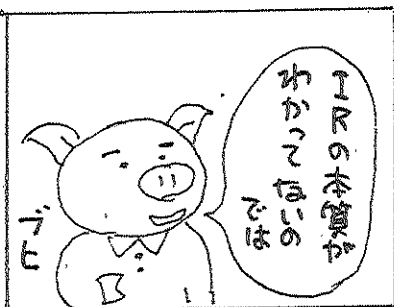 IRの本質が
わかってないの
では
ブヒ